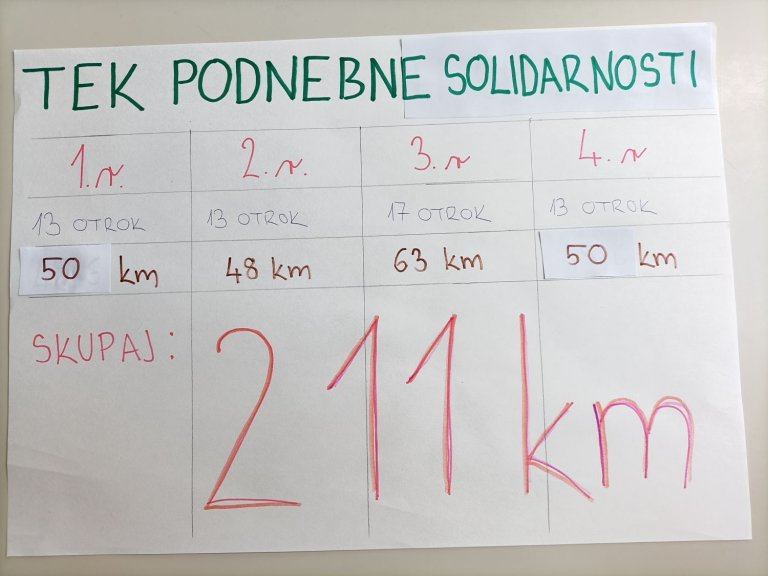 TEK PODNEBNE SOLIDARNOSTI
1. r. 2. r. 3. r 4. r
13 OTROK 13 OTROK 17 OTROK 13 OTROK
50 km 48 km 63 km 50 km
SKUPAJ: 211 km